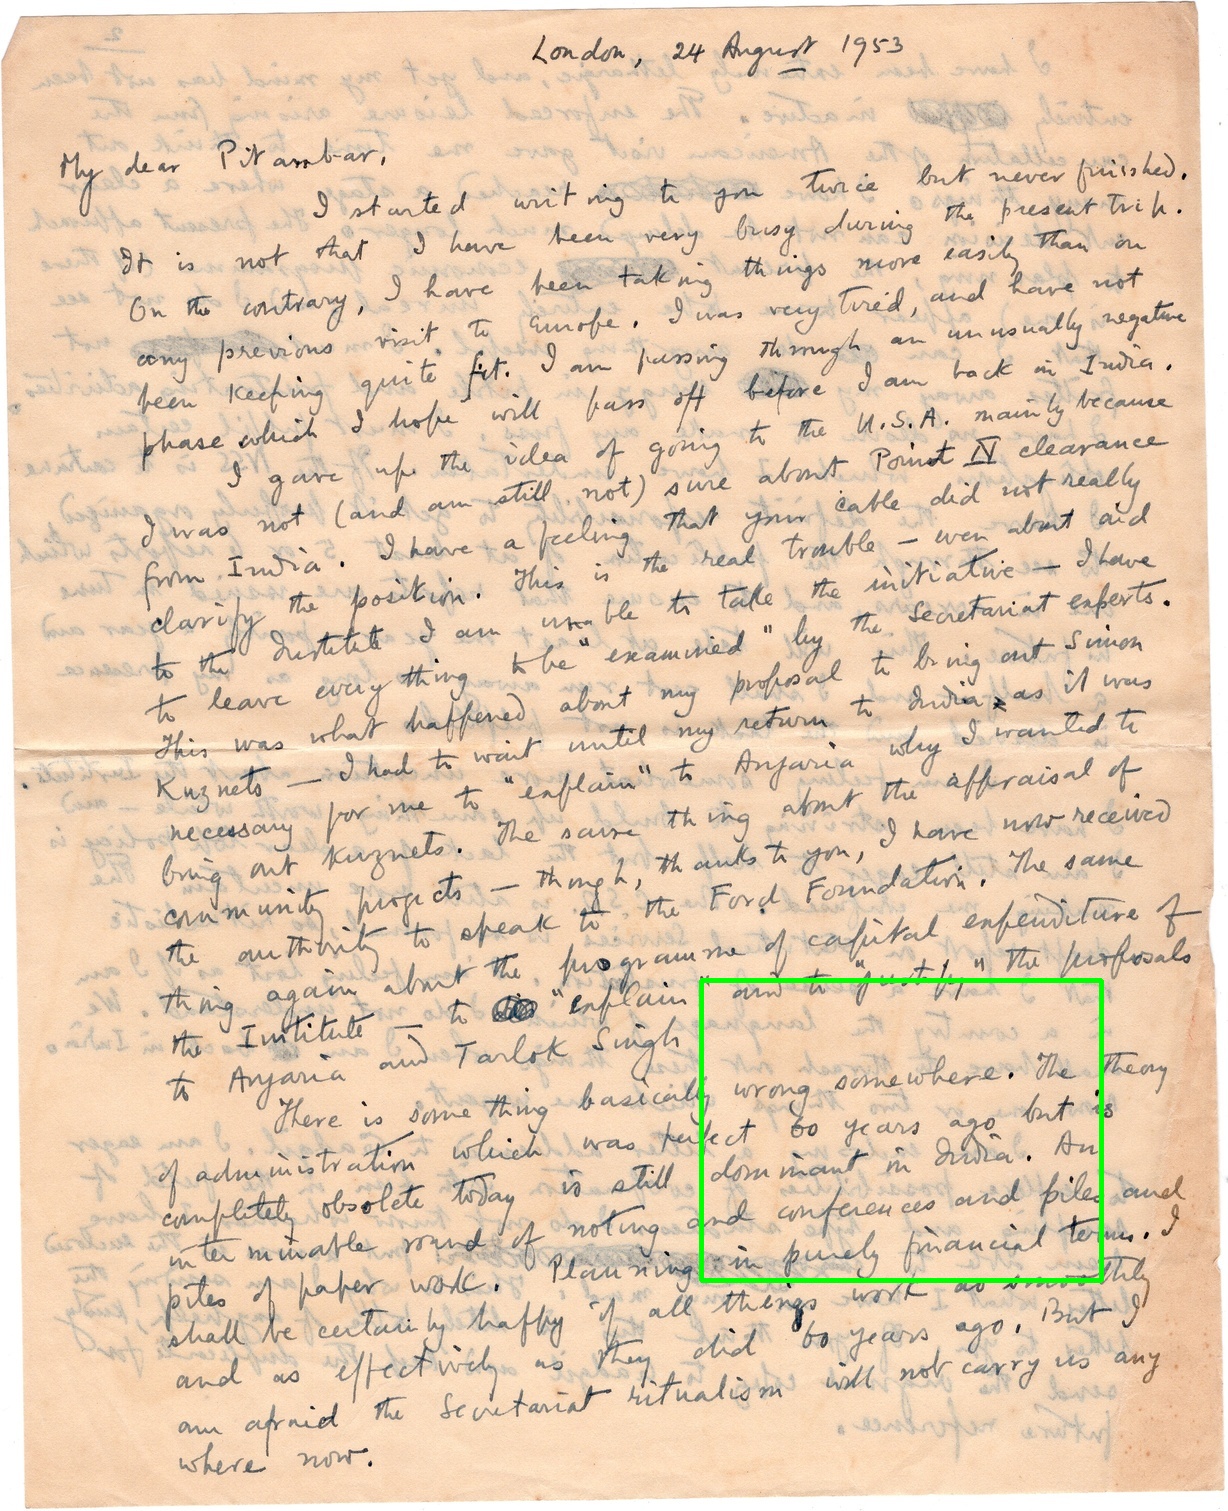 London, 24 August 1953
My dear Pitambar,
I started writing to you twice but never finished.
It is not that I have been very busy during the present trip.
On the contrary, I have been taking things more easily than on
any previous visit to Europe. I was very tired, and have not
been keeping quite fit. I am passing through an unusually negative
phase which I hope will pass off before I am back in India.
I gave up the idea of going to the U.S.A. mainly because
I was not (and am still not) sure about Point IV clearance
from India. I have a feeling that your cable did not really
clarify the position. This is the real trouble – even about aid
to the Institute I am unable to take the initiative – I have
to leave every thing to be "examined" by the Secretariat experts.
This was what happened about my proposal to bring out Simon
Kuznets – I had to wait until my return to India, as it was
necessary for me to "explain" to Anjaria why I wanted to
bring out Kuznets. The same thing about the appraisal of
community projects – though, thanks to you, I have now received
the authority to speak to the Ford Foundation. The same
thing again about the programme of capital expenditure of
the Institute – to "explain" and to "justify" the proposals
to Anjaria and Tarlok Singh
There is some thing basically wrong somewhere. The theory
of administration which was perfect 60 years ago but is
completely obsolete today is still dominant in India. An
interminable round of noting and conferences and piles and
piles of paper work. Planning in purely financial terms. I
shall be certainly happy if all things work as smoothly
and as effectively as they did 60 years ago. But I
am afraid the Secretariat ritualism will not carry us any
where now.